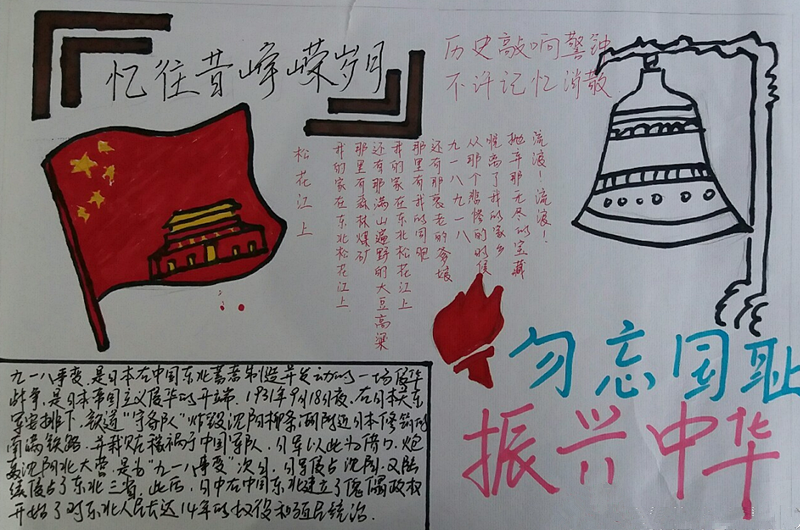 忆往昔峥嵘岁月
历史敲响警钟
不许记忆消散
松花江上
我的家在东北松花江上
那里有森林煤矿
还有那满山遍野的大豆高粱
我的家在东北松花江上
那里有我的同胞
还有那衰老的爹娘
九一八九一八
从那个悲惨的时候
脱离了我的家乡
抛弃那无尽的宝藏
流浪！流浪！
勿忘国耻
振兴中华
九一八事变,是日本在中国东北蓄意制造并发动的一场侵华
战争,是日本帝国主义侵华的开端.1931年9月18日夜,在日本关东
军安排下,铁道"守备队"炸毁沈阳柳条湖附近日本修筑的
南满铁路,并嫁祸于中国军队.日军以此为借口,炮
轰沈阳北大营,是为"九一八事变"次日,日军侵占沈阳,又陆
续侵占了东北三省.此后,日本在中国东北建立了傀儡政权
开始了对东北人民长达14年的奴役和殖民统治.